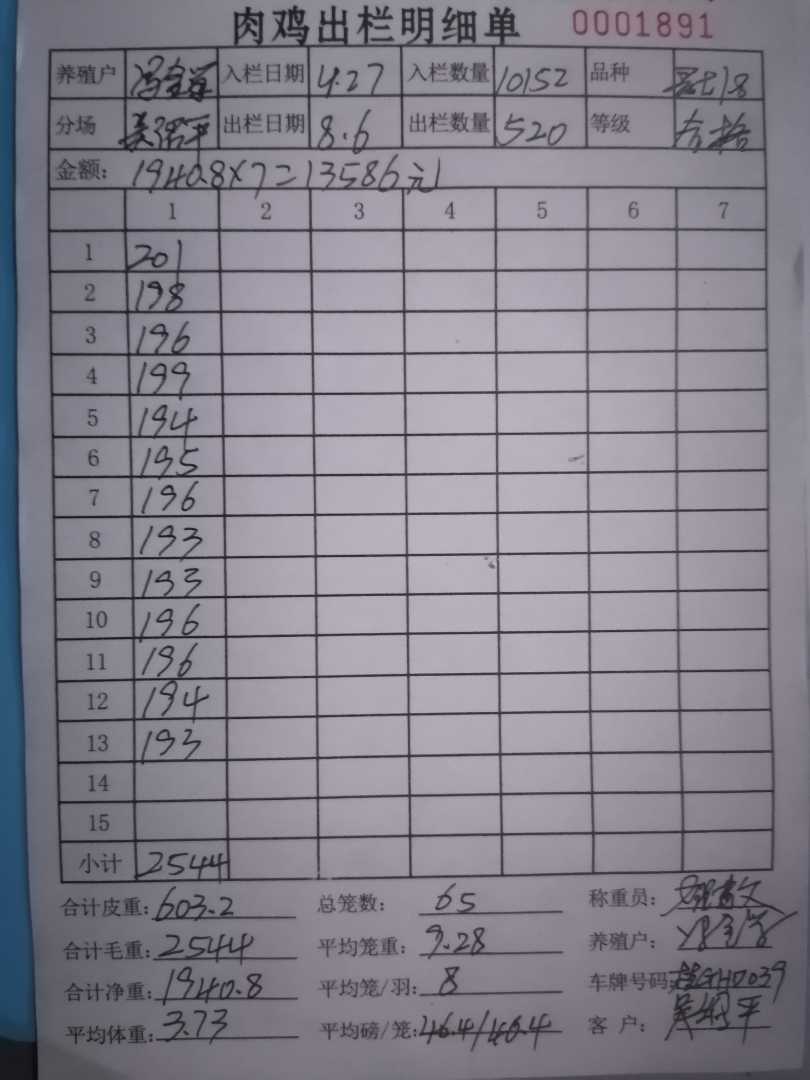 肉鸡出栏明细单 0001891
养殖户 入栏日期 4.27 入栏数量 10152 品种
分场 出栏日期 8.6 出栏数量 520 等级 合格
金额: 1940.8×7=13586元
1 2 3 4 5 6 7
1 201
2 198
3 196
4 199
5 194
6 195
7 196
8 193
9 193
10 196
11 196
12 194
13 193
14
15
小计 2544
合计皮重: 603.2 总笼数: 65 称重员:
合计毛重: 2544 平均笼重: 9.28 养殖户:
合计净重: 1940.8 平均笼/羽: 8 车牌号码:
平均体重: 3.73 平均磅/笼: 46.4/46.4 客 户: